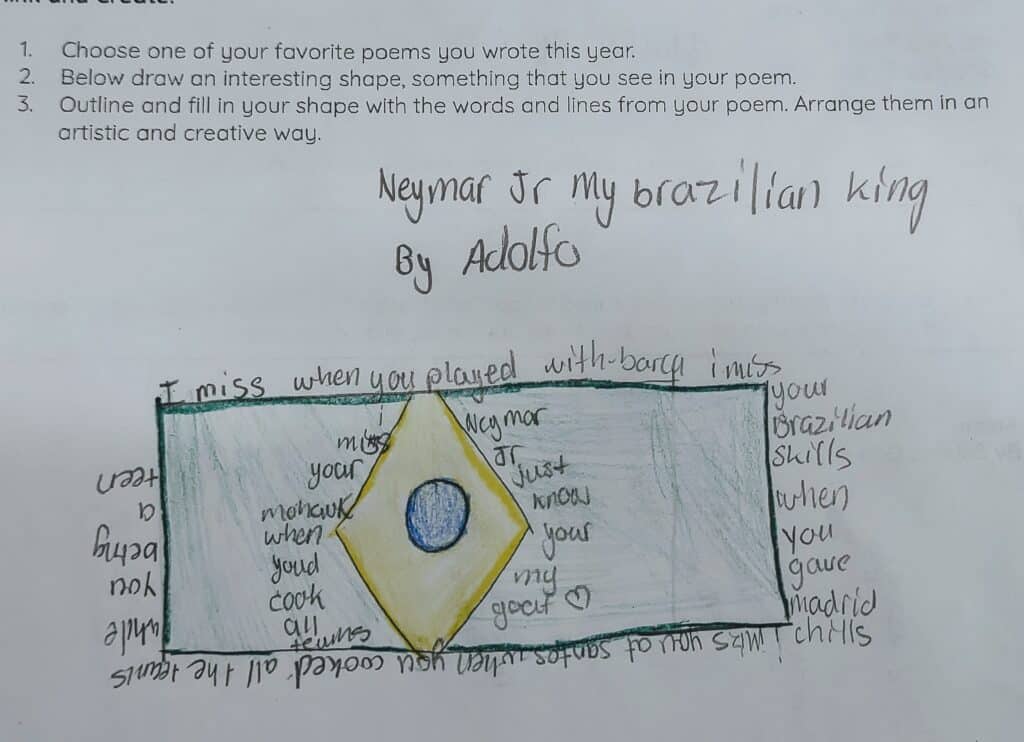 and create.
1. Choose one of your favorite poems you wrote this year.
2. Below draw an interesting shape, something that you see in your poem.
3. Outline and fill in your shape with the words and lines from your poem. Arrange them in an
artistic and creative way.
Neymar Jr My brazilian king
By Adolfo
I miss when you played with barca i miss
your
Brazilian
skills
when
you
gave
madrid
chills
i miss you at santos when you cooked all the teams
while
you
being
a
teen
i
miss
your
mohawk
when
youd
cook
all
teams
Neymar
Jr
just
know
your
my
goat ♡